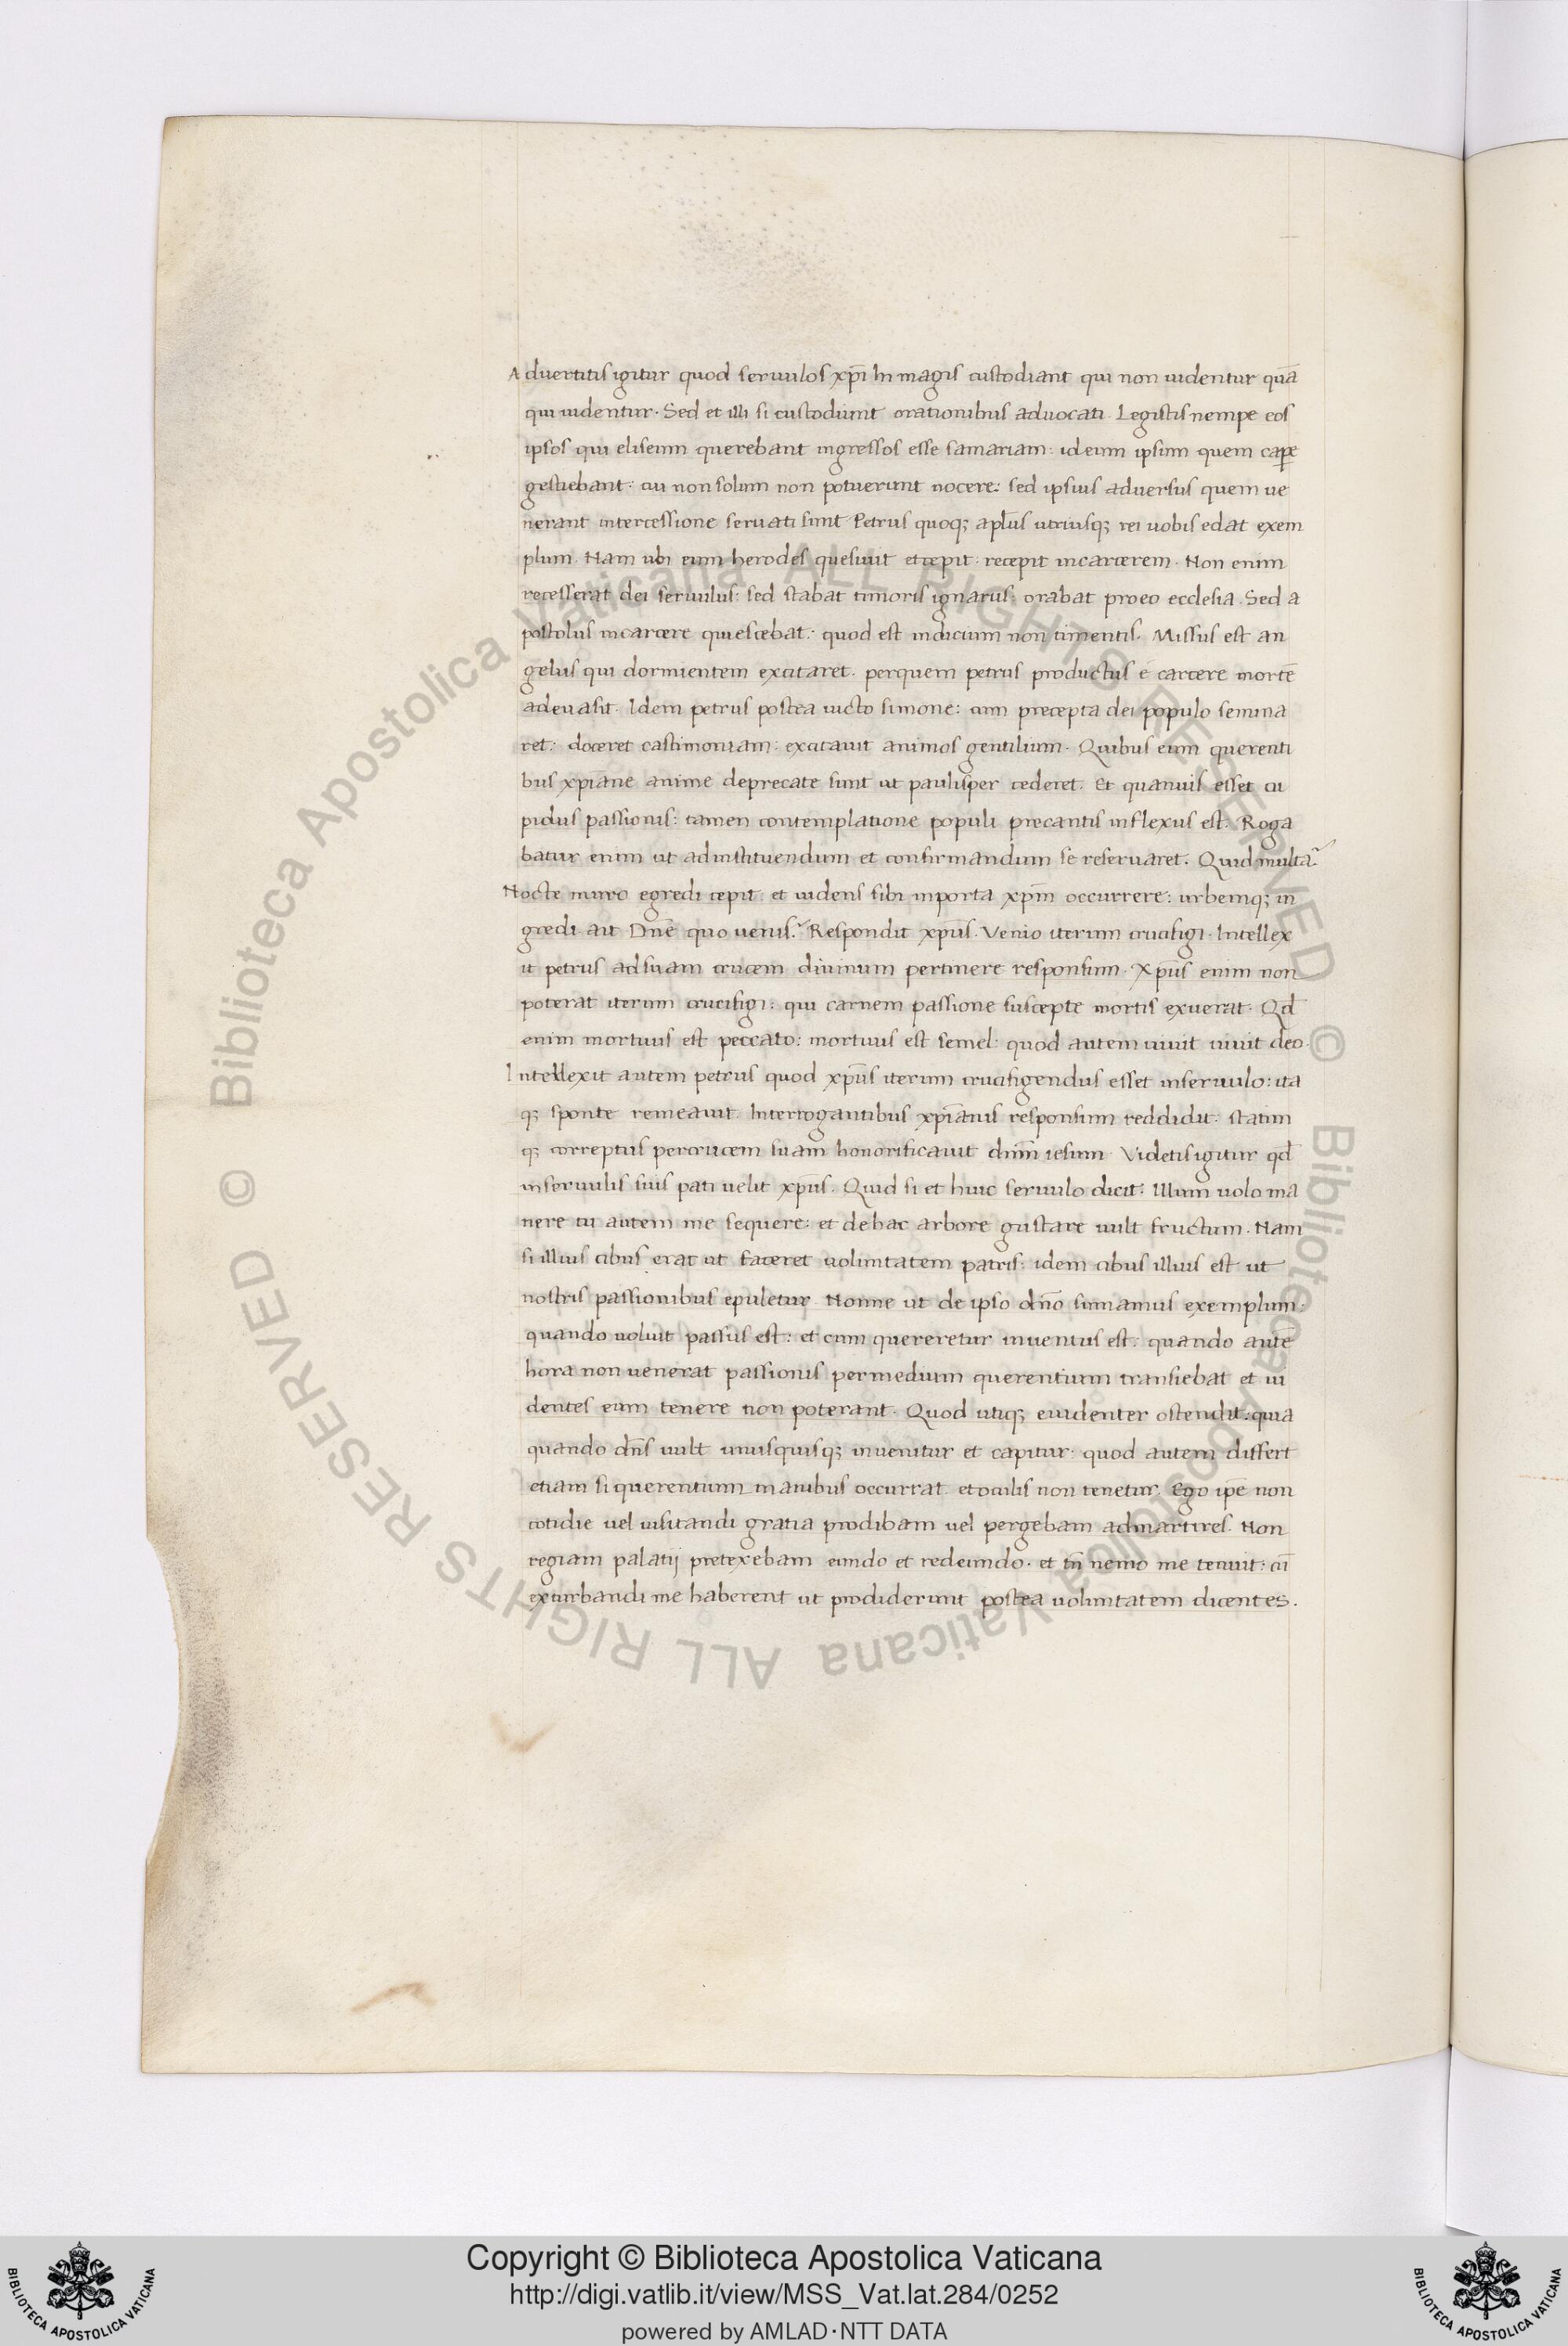 Advertitis igitur quod seruulos xp̄i hi magis custodiant qui non uidentur quā
qui uidentur. Sed et illi si custodiunt orationibus aduocati. Legistis nempe eos
ipsos qui eliseum querebant ingressos esse samariam: id eum ipsum quem cape
gestiebant: cui non solum non potuerunt nocere: sed ipsius aduersus quem ue
nerant intercessione seruati sunt. Petrus quoq; apl̄us utriusq; rei uobis edat exem
plum. Nam ubi eum herodes quesiuit et cepit. recepit in carcerem. Non enim
recesserat dei seruulus: sed stabat timoris ignarus: orabat pro eo ecclesia. Sed a
postolus in carcere quiescebat: quod est indicium non timentis. Missus est an
gelus qui dormientem excitaret. per quem petrus productus é carcere mortē
ad euasit. Idem petrus postea uicto simone: cum precepta dei populo semina
ret: doceret castimoniam: excitauit animos gentilium. Quibus eum querenti
bus xp̄iane anime deprecate sunt ut paulisper cederet. Et quamuis esset cu
pidus passionis: tamen contemplatione populi precantis inflexus est. Roga
batur enim ut ad instituendum et confirmandum se reseruaret. Quid multa?
Nocte muro egredi cepit: et uidens sibi in porta xp̄m occurrere: urbemq; in
gredi. ait Dn̄e quo uenis? Respondit xp̄us. Venio iterum crucifigi. Intellex
it petrus ad suam crucem diuinum pertinere responsum. Xp̄us enim non
poterat iterum crucifigi: qui carnem passione suscepte mortis exuerat. Qd̄
enim mortuus est peccato: mortuus est semel: quod autem uiuit uiuit deo.
Intellexit autem petrus quod xp̄us iterum crucifigendus esset in seruulo: ita
q; sponte remeauit. Interrogantibus xp̄ianis responsum reddidit: statim
q; correptus per crucem suam honorificauit dn̄m iesum. Videtis igitur qd̄
in seruulis suis pati uelit xp̄us. Quid si et huic seruulo dicit: Illum uolo ma
nere tu autem me sequere: et de hac arbore gustare uult fructum. Nam
si illius cibus erat ut faceret uoluntatem patris: idem cibus illius est ut
nostris passionibus epuletur. Nonne ut de ipso dn̄o sumamus exemplum:
quando uoluit passus est: et cum quereretur inuentus est: quando autē
hora non uenerat passionis per medium querentium transiebat et ui
dentes eum tenere non poterant. Quod utiq; euidenter ostendit: quia
quando dn̄s uult unusquisq; inuenitur et capitur: quod autem differt
etiam si querentium manibus occurrat. et oculis non tenetur. Ego ip̄e non
cotidie uel uisitandi gratia prodibam uel pergebam ad martires. Non
regiam palatij pretexebam eundo et redeundo. et tn̄ nemo me tenuit: cū
exturbandi me haberent ut prodiderunt postea uoluntatem dicentes.
© Biblioteca Apostolica Vaticana ALL RIGHTS RESERVED © Biblioteca Apostolica Vaticana ALL RIGHTS RESERVED
Copyright © Biblioteca Apostolica Vaticana
http://digi.vatlib.it/view/MSS_Vat.lat.284/0252
powered by AMLAD·NTT DATA
BIBLIOTECA APOSTOLICA VATICANA
BIBLIOTECA APOSTOLICA VATICANA